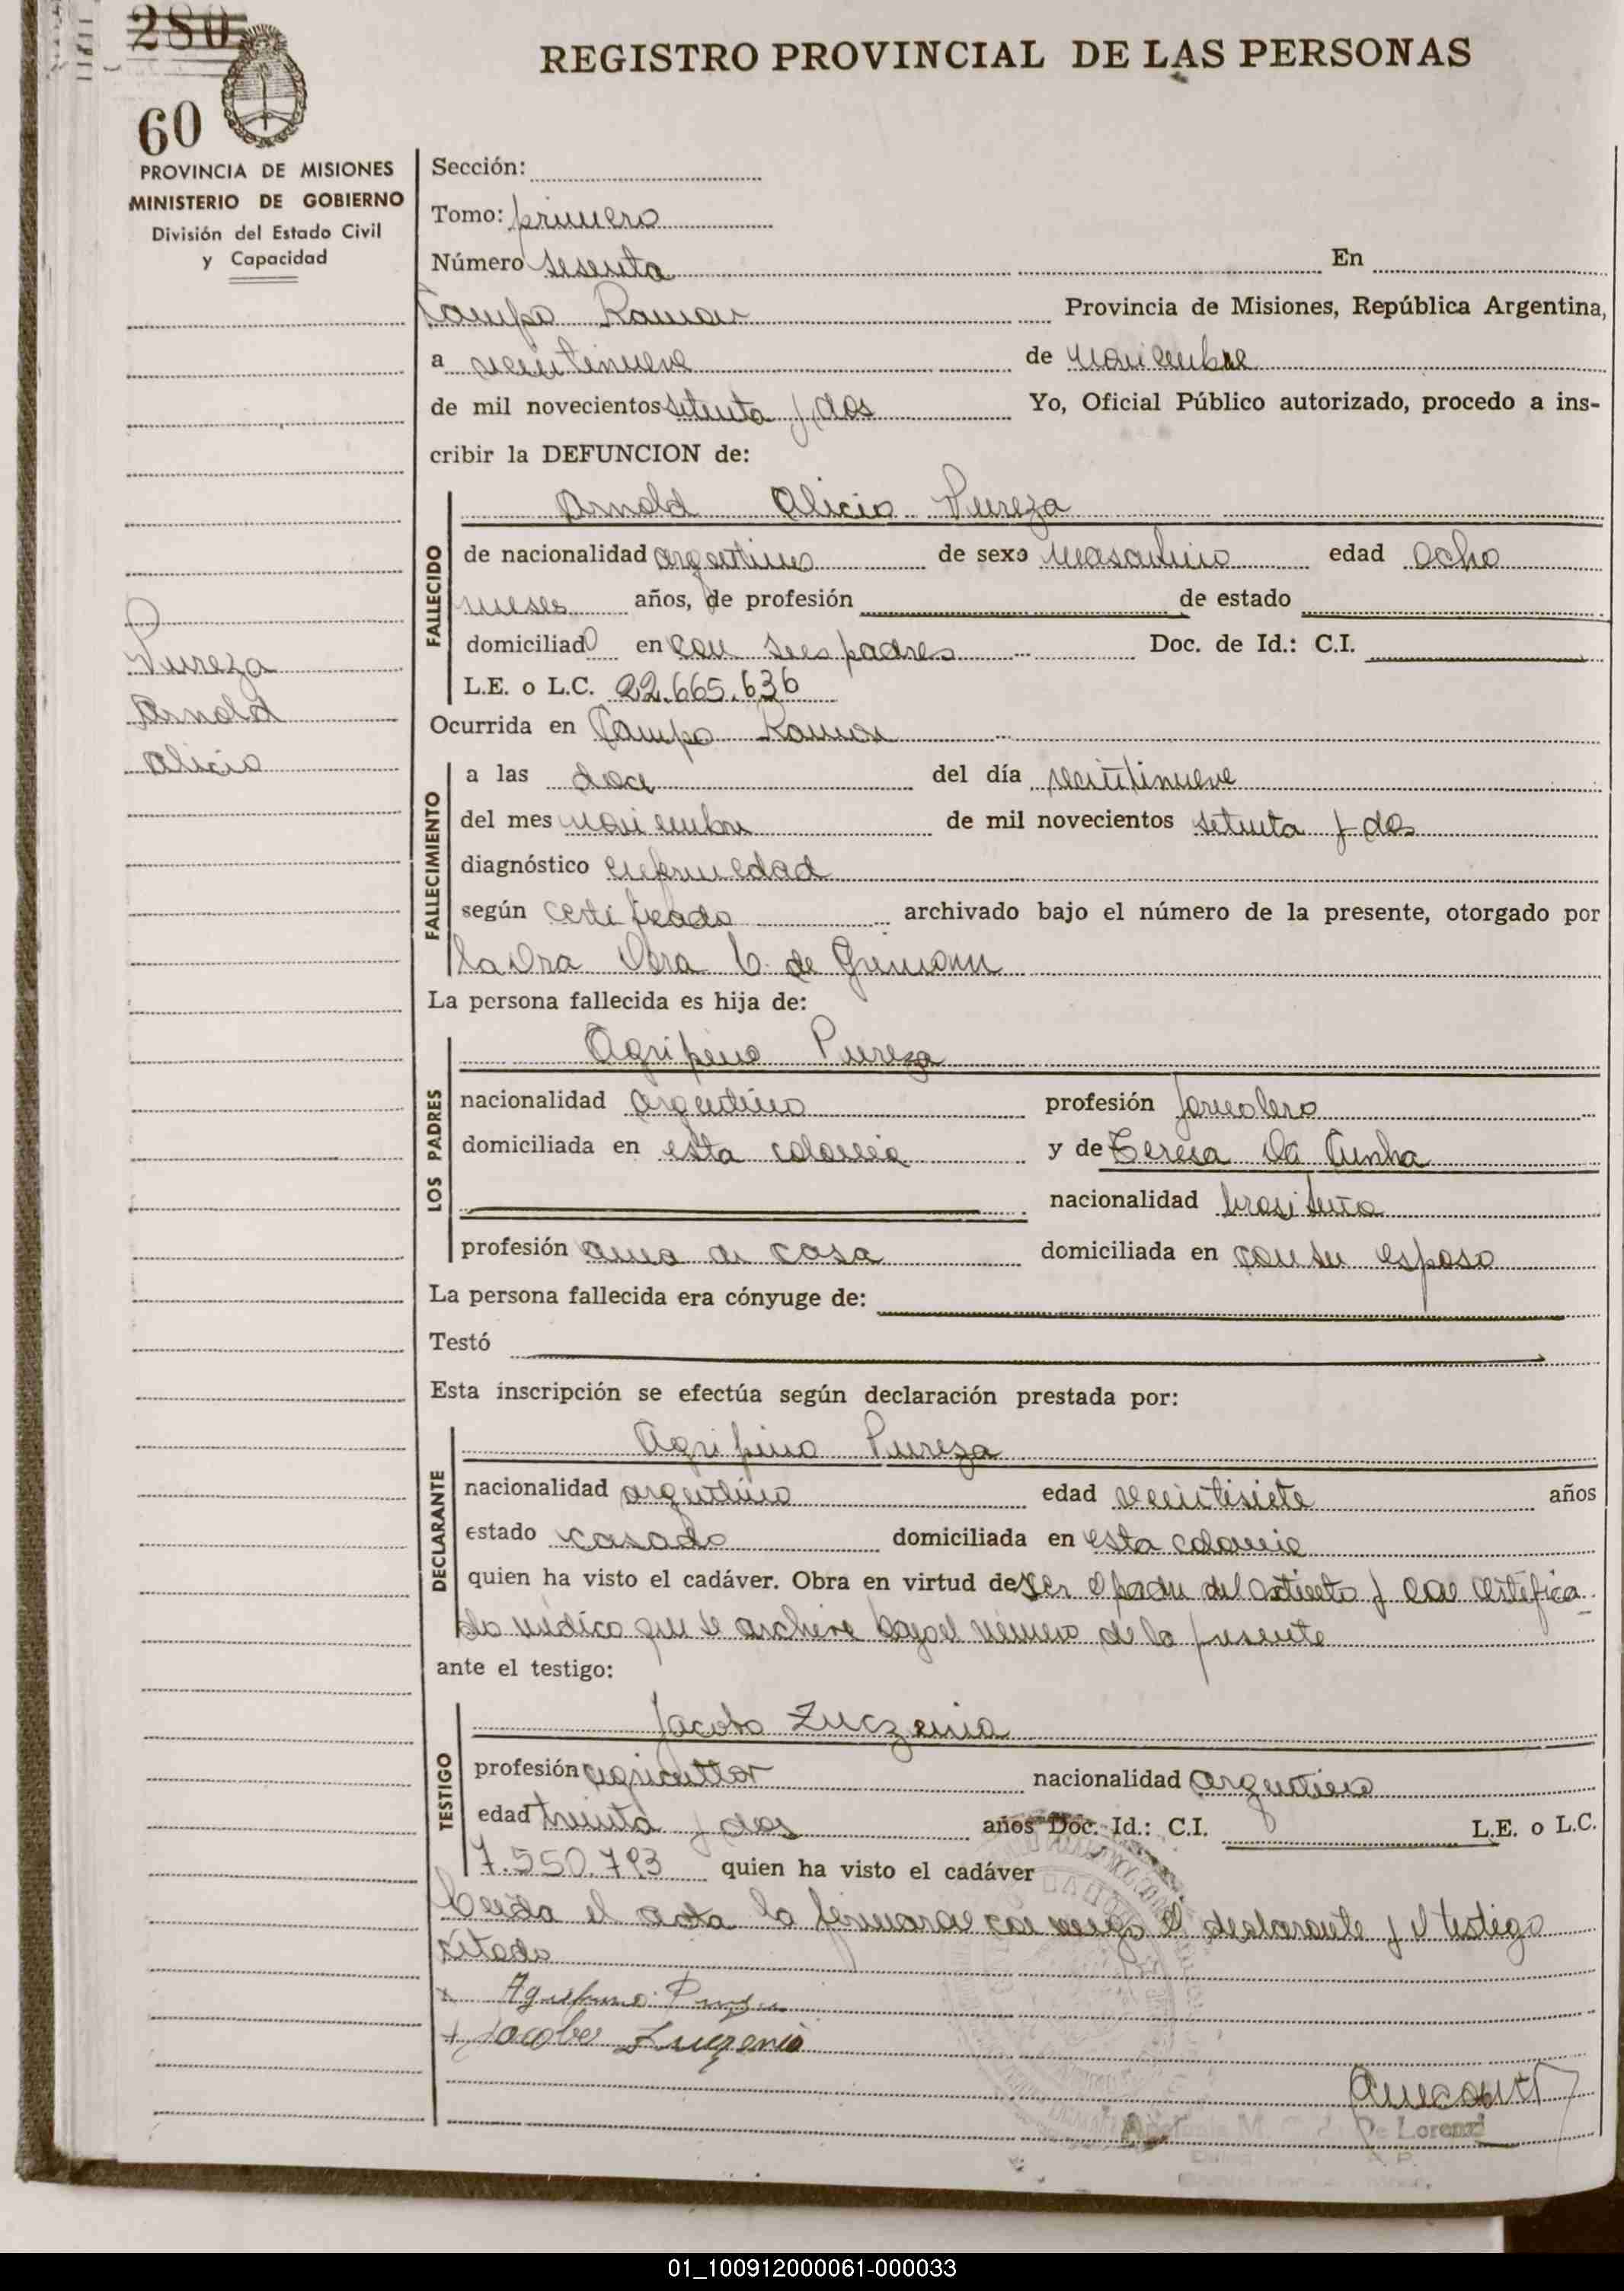 280
60
REGISTRO PROVINCIAL DE LAS PERSONAS
PROVINCIA DE MISIONES
MINISTERIO DE GOBIERNO
División del Estado Civil
y Capacidad
Pureza
Arnold
Alicio
Sección:
Tomo: primero
Número sesenta En
Campo Ramon Provincia de Misiones, República Argentina,
a veintinueve de noviembre
de mil novecientos setenta y dos Yo, Oficial Público autorizado, procedo a ins-
cribir la DEFUNCION de:
FALLECIDO
Arnold Alicio Pureza
de nacionalidad argentino de sexo masculino edad ocho
meses años, de profesión de estado
domiciliado en con sus padres Doc. de Id.: C.I.
L.E. o L.C. 22.665.636
Ocurrida en Campo Ramon
FALLECIMIENTO
a las doce del día veintinueve
del mes noviembre de mil novecientos setenta y dos
diagnóstico enfermedad
según certificado archivado bajo el número de la presente, otorgado por
la Dra de
La persona fallecida es hija de:
LOS PADRES
Agripino Pureza
nacionalidad argentino profesión jornalero
domiciliada en esta colonia y de Teresa Da Cunha
nacionalidad brasileña
profesión ama de casa domiciliada en con su esposo
La persona fallecida era cónyuge de:
Testó
Esta inscripción se efectúa según declaración prestada por:
DECLARANTE
Agripino Pureza
nacionalidad argentino edad veintisiete años
estado casado domiciliada en esta colonia
quien ha visto el cadáver. Obra en virtud de ser el padre del extinto y con certifica-
do médico que se archiva bajo el número de la presente
ante el testigo:
TESTIGO
Jacobo Zuczenia
profesión agricultor nacionalidad argentino
edad treinta y dos años Doc. Id.: C.I. L.E. o L.C.
7.550.793 quien ha visto el cadáver
Leída el acta la firmaron conmigo el declarante y el testigo
citado
x Agripino Pureza
x Jacobo
M. De Lorenzi
01_100912000061-000033